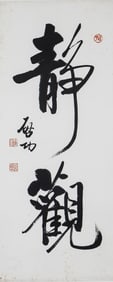 靜觀
啟功